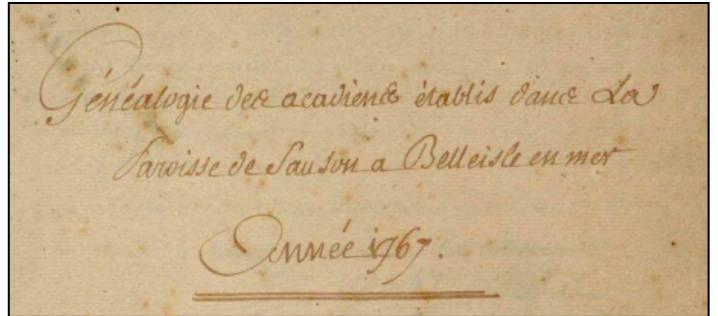 Généalogie des acadiens établis dans La
Paroisse de Sauson a Belleisle en mer
Année 1767.